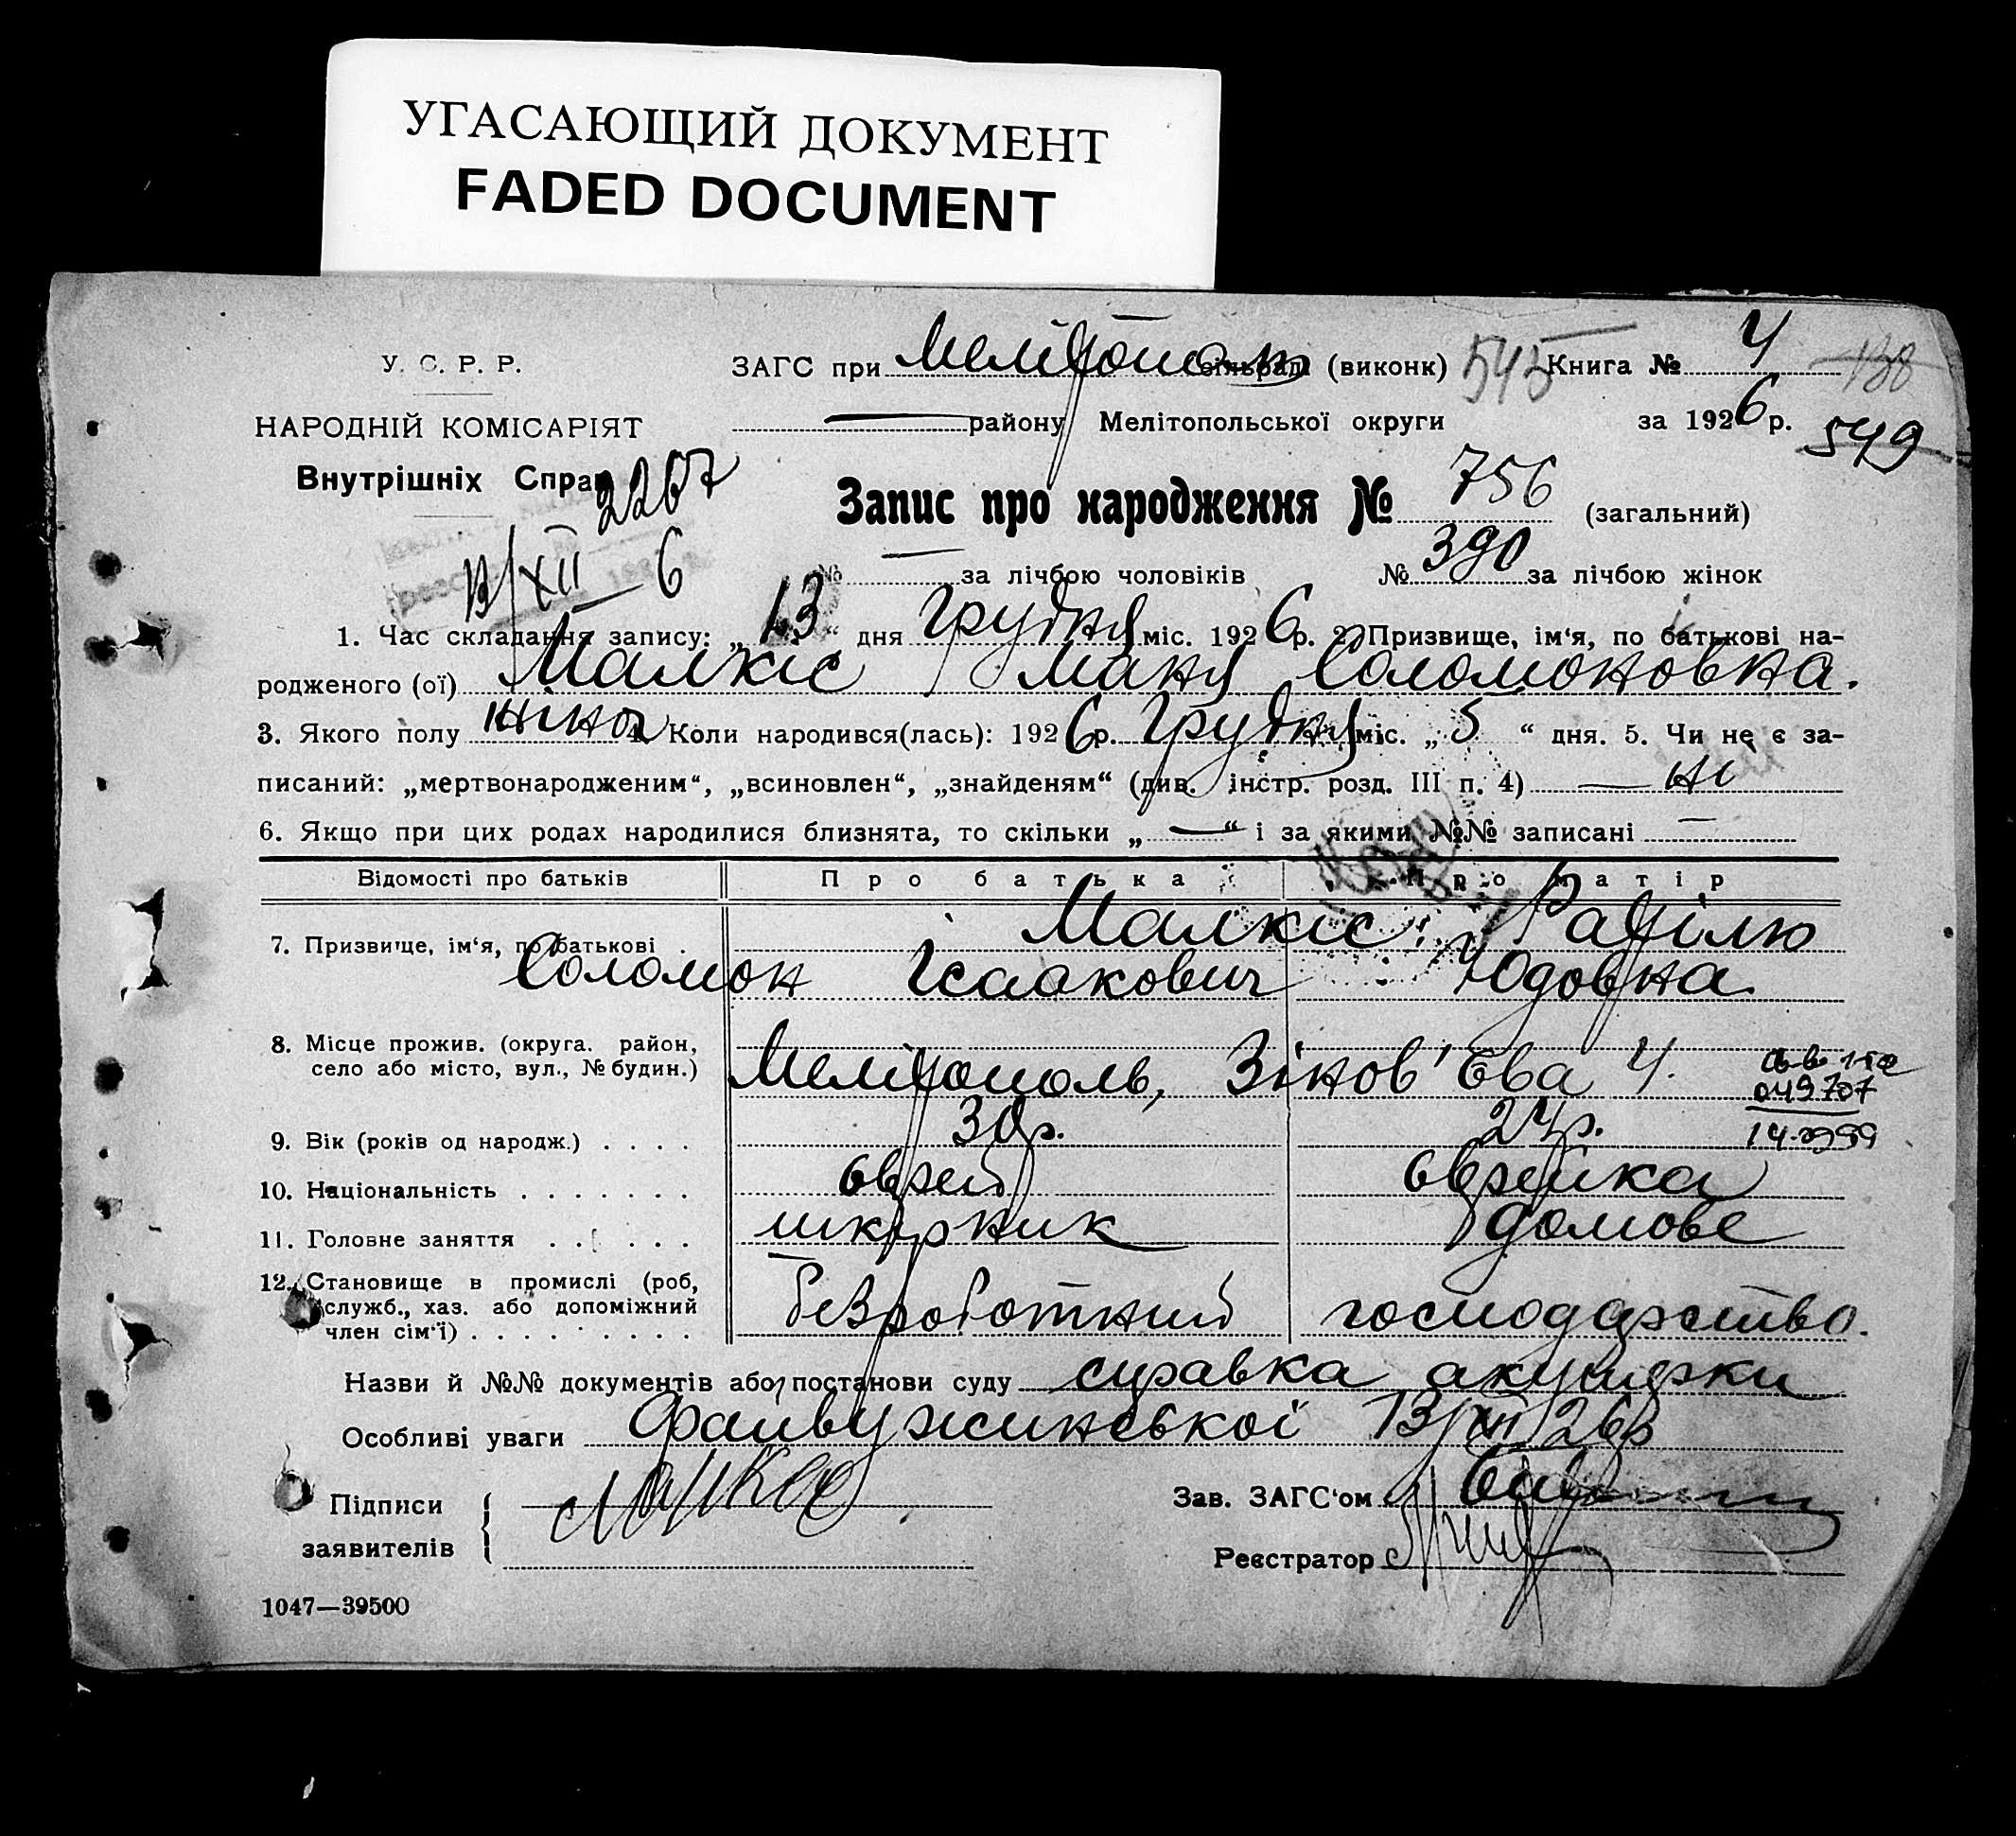 УГАСАЮЩИЙ ДОКУМЕНТ
FADED DOCUMENT
У. С. Р. Р.
НАРОДНІЙ КОМІСАРІЯТ
Внутрішніх Справ
2267
13/XII – 6
ЗАГС при Мелітополь сільраді (виконк) 545 Книга № 4
138
— району Мелітопольської округи за 1926 р. 549
Запис про народження № 756 (загальний)
№ — за лічбою чоловіків № 390 за лічбою жінок
1. Час складання запису: „13“ дня Грудня міс. 1926 р. 2. Призвище, ім‘я, по батькові на-
родженого (ої) Малкіс Маня Соломоновна.
3. Якого полу жіноч 4. Коли народився(лась): 1926 р. Грудня міс. „5“ дня. 5. Чи не є за-
писаний: „мертвонародженим“, „всиновлен“, „знайденям“ (див. інстр. розд. III п. 4) — ні
6. Якщо при цих родах народилися близнята, то скільки „—“ і за якими №№ записані —
Відомості про батьків Про батька Про матір
7. Призвище, ім‘я, по батькові Малкіс Рахілю
Соломон Ісаакович Юдовна
8. Місце прожив. (округа. район,
село або місто, вул., № будин.) Мелітополь, Зінов'єва 4.
049707
9. Вік (років од народж.) 30 р. 24 р.
10. Національність єврей єврейка
11. Головне заняття шкірник домове
12. Становище в промислі (роб,
служб., хаз. або допоміжний
член сім‘ї) безроботний господарство.
Назви й №№ документів або постанови суду справка акушерки
Особливі уваги 13/XII 26 р
Підписи
заявителів
Зав. ЗАГС‘ом
Реєстратор
1047—39500